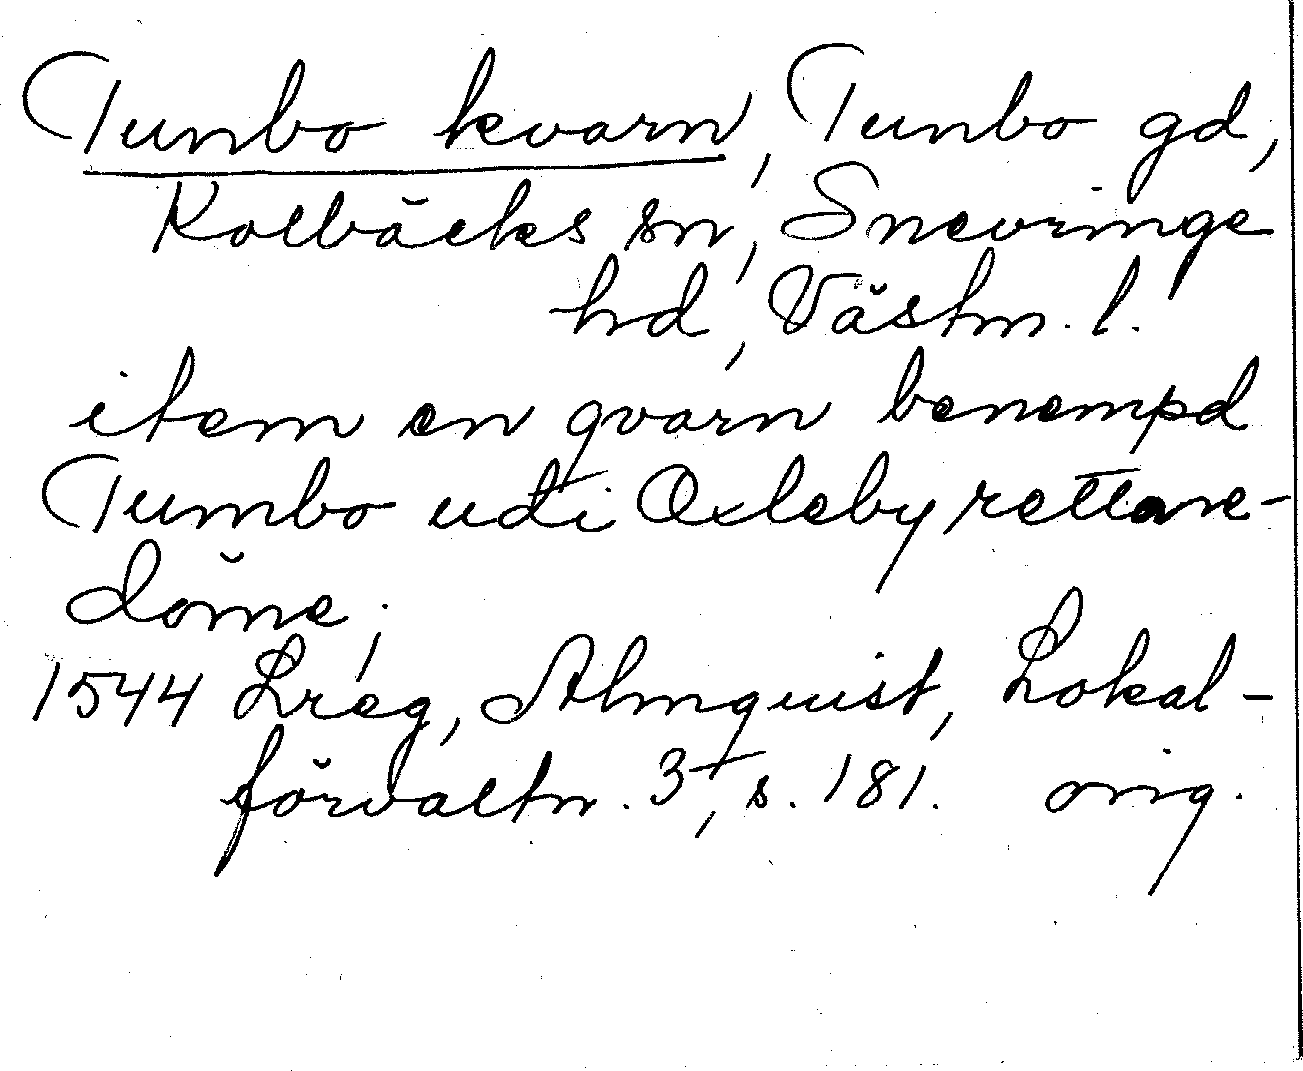 Tunbo kvarn, Tunbo gd,
Kolbäcks sn, Snevringe
hd, Västm. l.
item en qvarn benempd
Tumbo udi Oxleby rettare-
döme;
1544 Lreg, Almquist, Lokal-
förvaltn. 3, s. 181. orig.